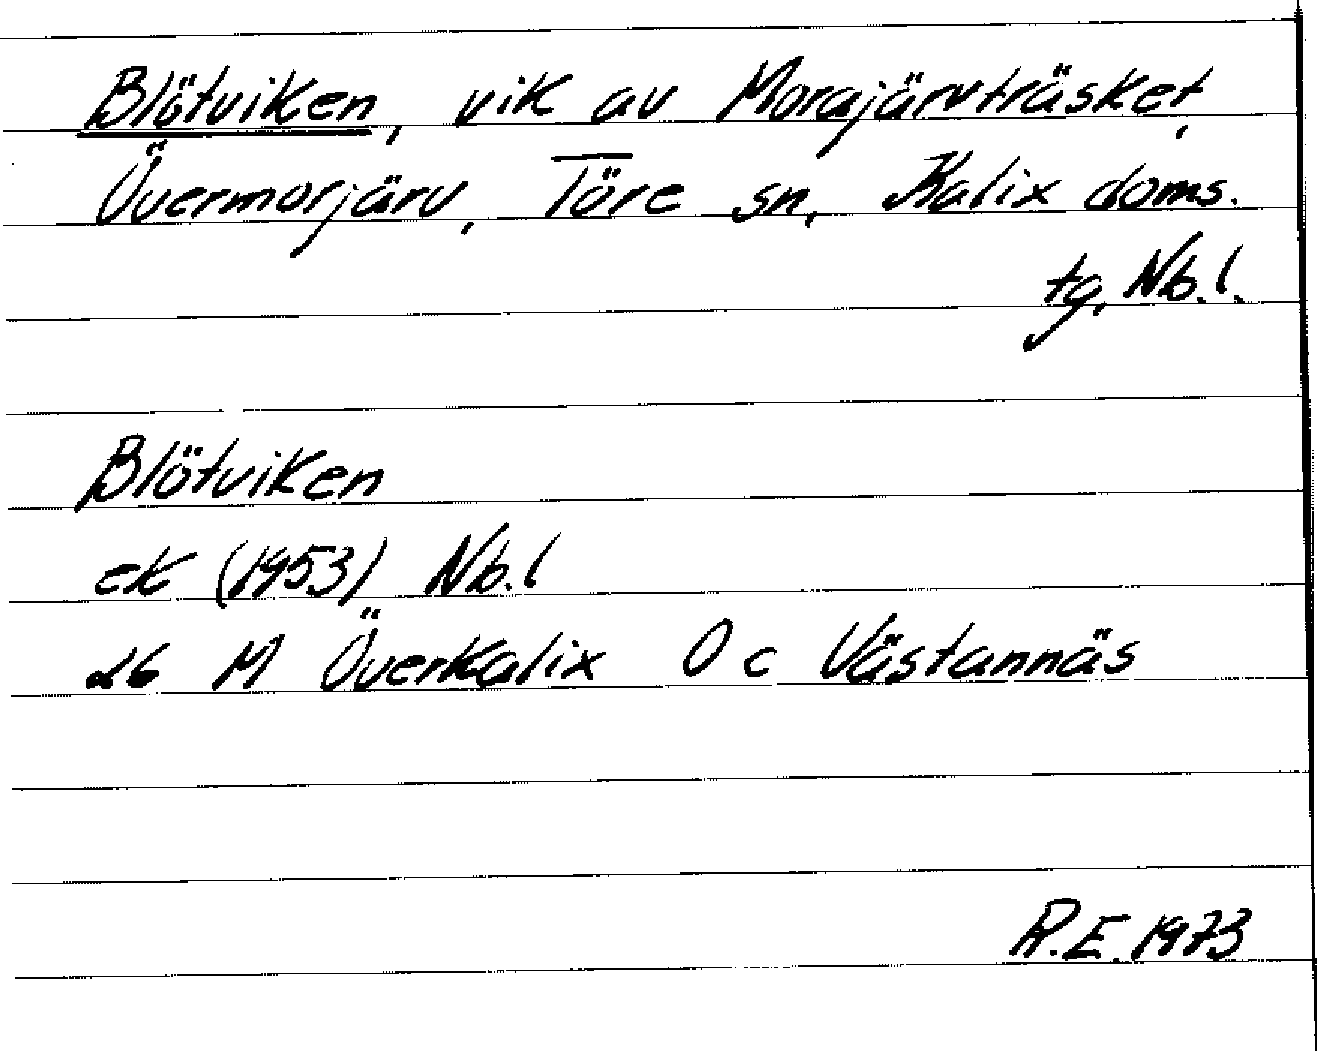 Blötviken, vik av Morajärvträsket,
Övermorjärv, Töre sn, Kalix doms.
tg, Nb.l.
Blötviken
ek (1953) Nb.l
26 M Överkalix O c Västannäs
R.E. 1973